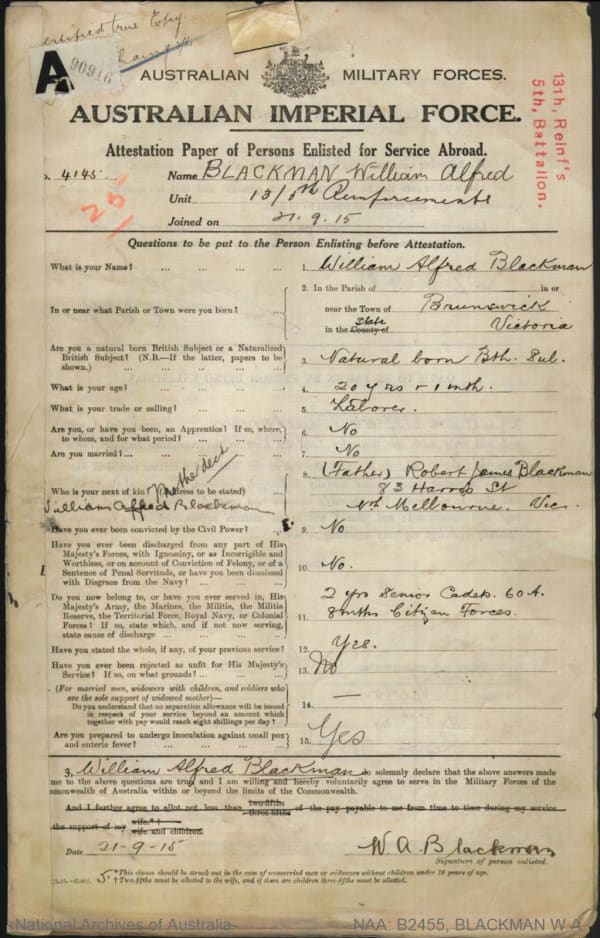 Certified true Copy.
A
90916
AUSTRALIAN MILITARY FORCES.
AUSTRALIAN IMPERIAL FORCE.
13th, Reinf's
5th, Battalion.
Attestation Paper of Persons Enlisted for Service Abroad.
o. 4145 Name BLACKMAN William Alfred
Unit 13/5th Reinforcements
Joined on 21.9.15
Questions to be put to the Person Enlisting before Attestation.
What is your Name? ... ... ... ... 1. William Alfred Blackman
2. In the Parish of in or
In or near what Parish or Town were you born? ... near the Town of Brunswick
in the County of State Victoria
Are you a natural born British Subject or a Naturalized
British Subject? (N.B.—If the latter, papers to be
shown.) ... ... ... ... 3. Natural born Bth. Sub.
What is your age? ... ... ... ... 4. 20 yrs 1 mth.
What is your trade or calling? ... ... ... 5. Laborer.
Are you, or have you been, an Apprentice? If so, where,
to whom, and for what period? ... ... ... 6. No
Are you married? ... ... ... ... 7. No
8. (Father) Robert James Blackman
Who is your next of kin? (Address to be stated) ... 83 Harris St
Nth Melbourne. Vic.
William Alfred Blackman
Have you ever been convicted by the Civil Power? 9. No
Have you ever been discharged from any part of His
Majesty's Forces, with Ignominy, or as Incorrigible and
Worthless, or on account of Conviction of Felony, or of a
Sentence of Penal Servitude, or have you been dismissed
with Disgrace from the Navy? ... ... ... 10. No.
Do you now belong to, or have you ever served in, His
Majesty's Army, the Marines, the Militia, the Militia
Reserve, the Territorial Force, Royal Navy, or Colonial
Forces? If so, state which, and if not now serving,
state cause of discharge ... ... ... ...
2 yrs Senior Cadets. 60A.
11. 8mths Citizen Forces.
Have you stated the whole, if any, of your previous service? 12. Yes.
Have you ever been rejected as unfit for His Majesty's
Service? If so, on what grounds? ... ... ... 13. No
(For married men, widowers with children, and soldiers who
are the sole support of widowed mother)—
Do you understand that no separation allowance will be issued
in respect of your service beyond an amount which
together with pay would reach eight shillings per day? 14. —
Are you prepared to undergo inoculation against small pox
and enteric fever? ... ... ... ... 15. Yes
I, William Alfred Blackman do solemnly declare that the above answers made
me to the above questions are true and I am willing and hereby voluntarily agree to serve in the Military Forces of the
mmonwealth of Australia within or beyond the limits of the Commonwealth.
And I further agree to allot not less than two-fifths three-fifths of the pay payable to me from time to time during my service
the support of my wife.*† wife and children.
Date 21-9-15 W. A. Blackman
Signature of person enlisted.
*This clause should be struck out in the case of unmarried men or widowers without children under 18 years of age.
†Two-fifths must be allotted to the wife, and if there are children three-fifths must be allotted.
National Archives of Australia NAA: B2455, BLACKMAN W A